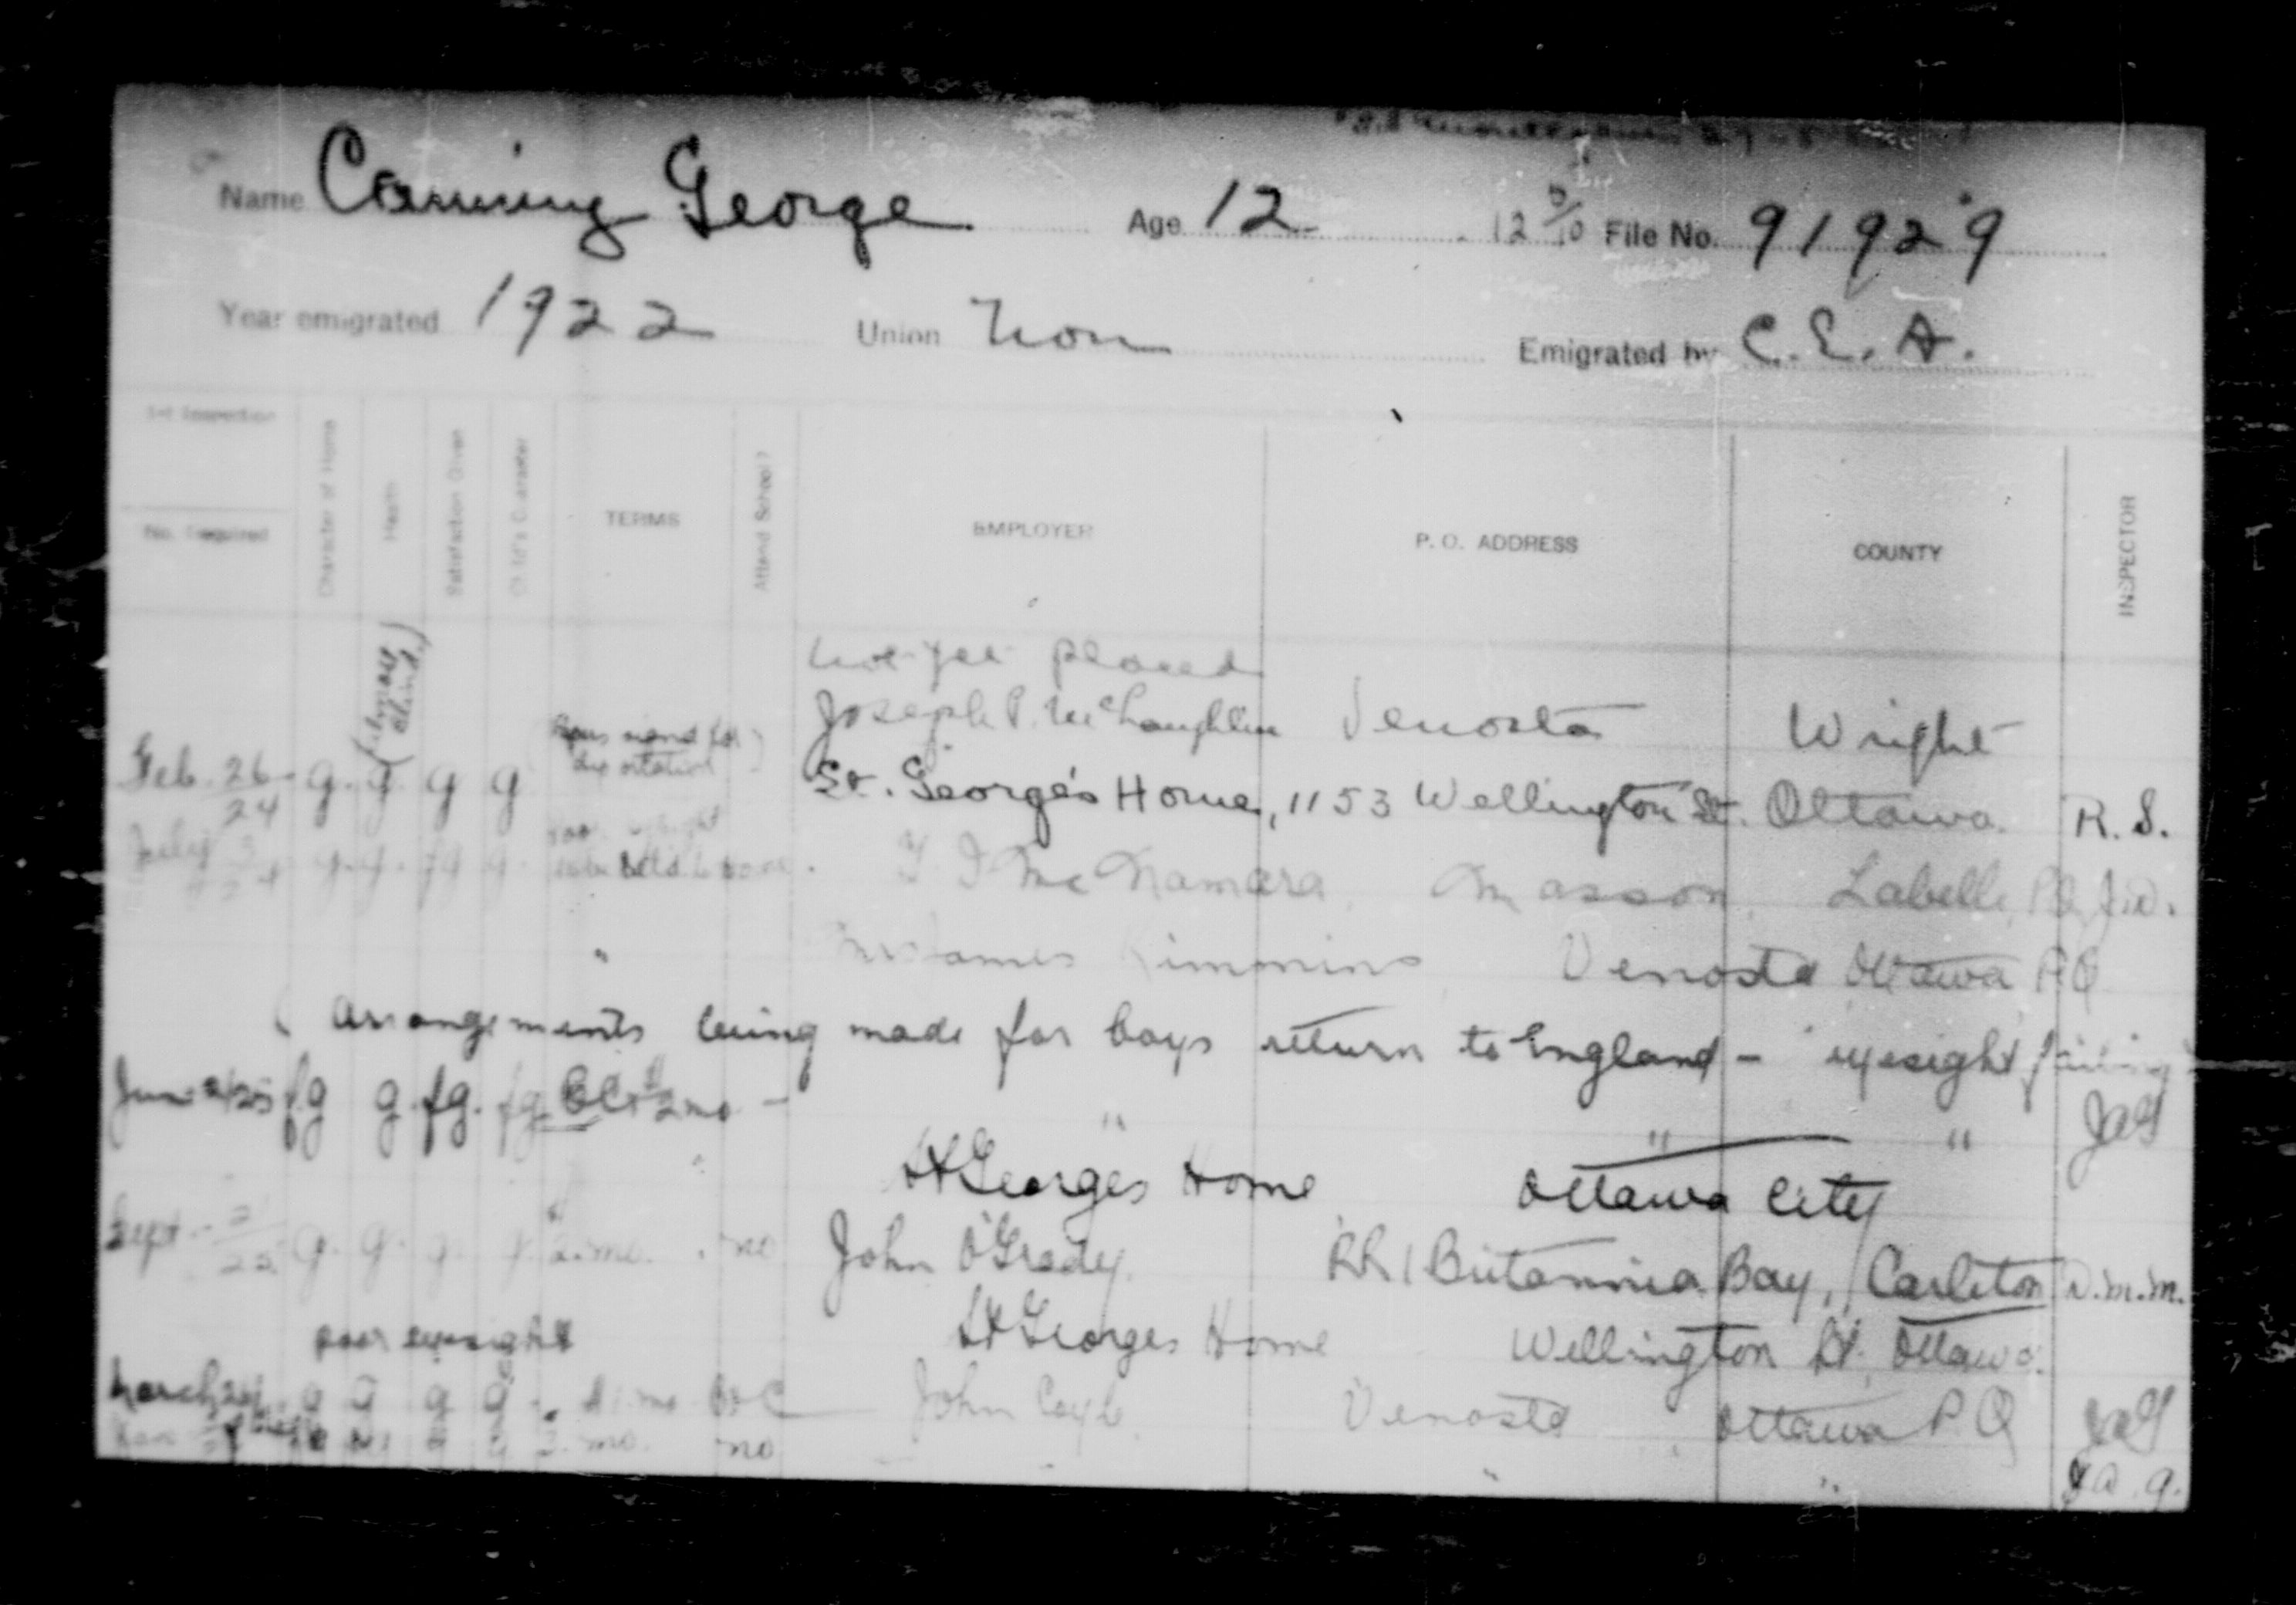 Name Canning George Age 12 12 File No. 91929
Year emigrated 1922 Union Non Emigrated by C.E.A.
1st Inspection
No. Required
Character of Home
Health
Satisfaction Given
Child's Character
TERMS
Attend School?
EMPLOYER
P. O. ADDRESS
COUNTY
INSPECTOR
not yet placed
Joseph P. McLaughlin Venosta Wright
(almost blind)
Feb. 26/24 g. g. g g St. George's Home, 1153 Wellington St. Ottawa. R. S.
July g. g. fg g. McNamara, Masson, Labelle, P.Q. J.D.
" James Kimmins Venosta Ottawa P.Q
( Arrangements being made for boys return to England - eyesight failing
June fg g fg. fg. 2 mo - " " " JAG
St Georges Home Ottawa City
Sept. g. g. g. g. mo. no John O'Grady. RR 1 Britannia Bay, Carleton D.M.M.
poor eyesight St Georges Home Wellington St. Ottawa.
March g g g g mo John Coyle Venosta Ottawa P Q JAG
mo. no " " J A. G.